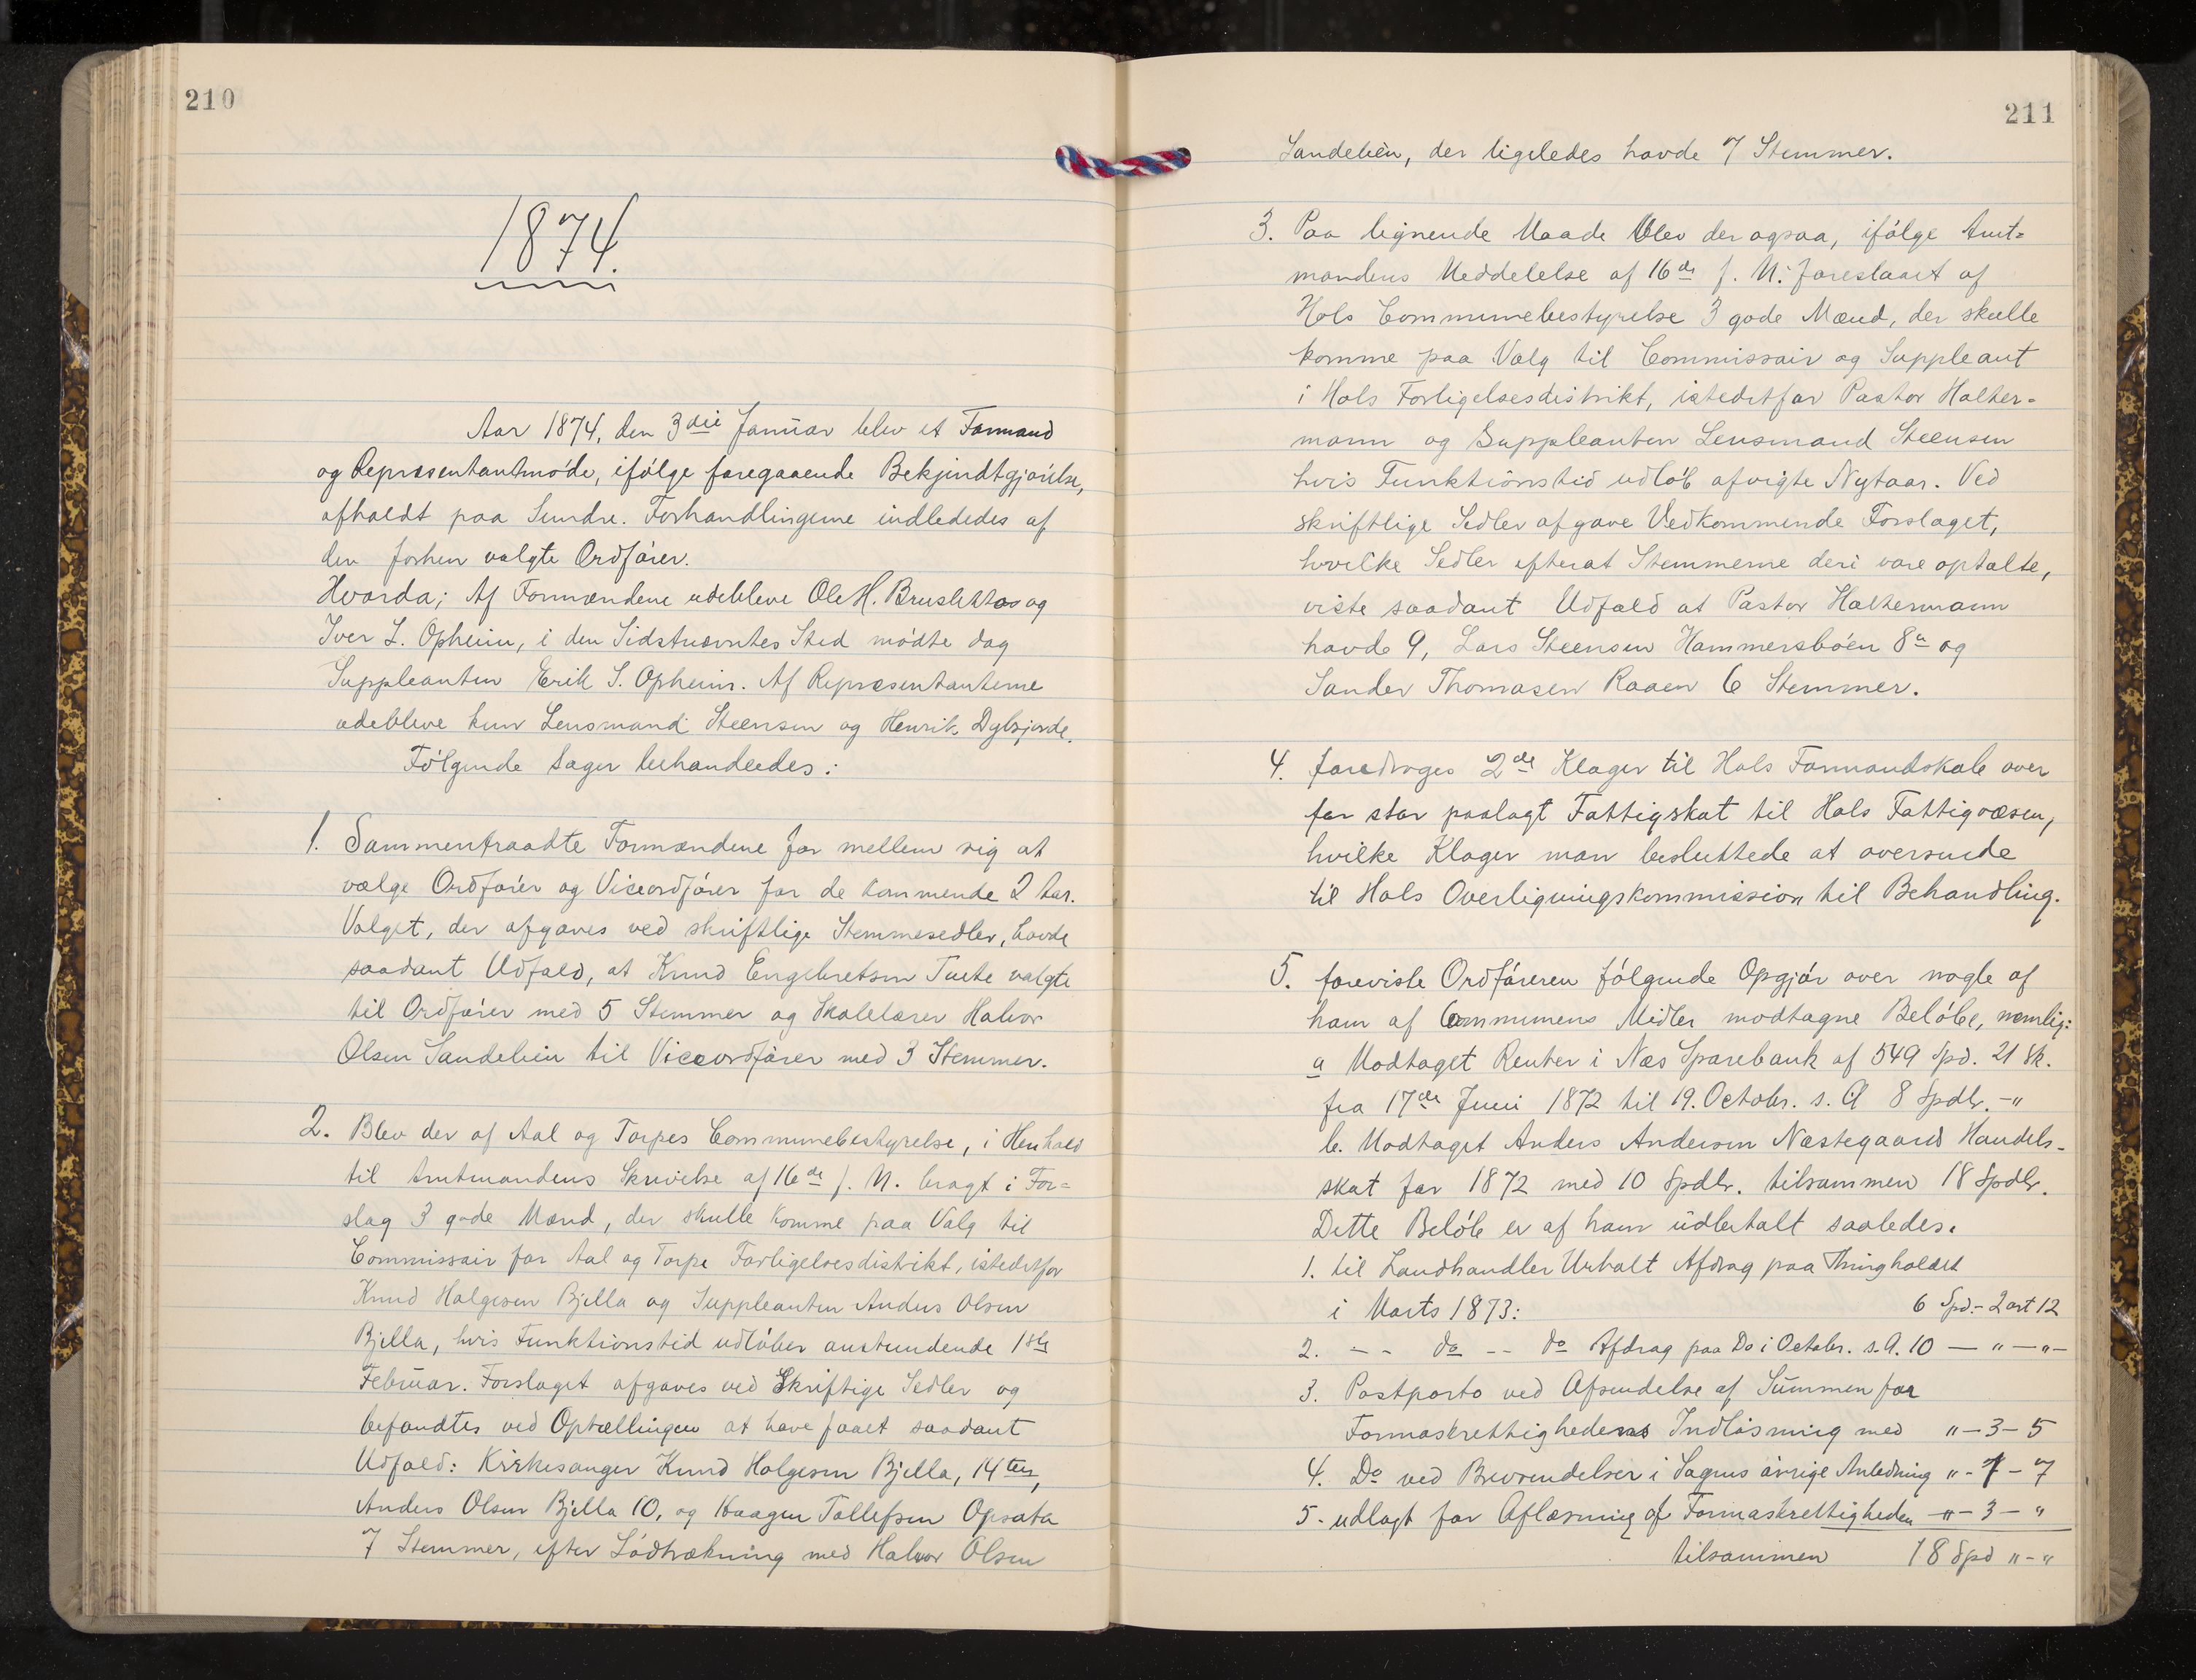 210
1874.
Aar 1874, den 3die Januar blev et Formand
og Repræsentantmøde, ifølge foregaaende Bekjendtgjørelse,
afholdt paa Sundre. Forhandlingerne indlededes af
den forhen valgte Ordfører.
Hvorda; Af Formændene udebleve Ole H. Bruslettos og
Iver L. Opheim, i den Sidstnævntes Sted mødte dog
Suppleanten Erik S. Opheim. Af Repræsentanterne
udebleve kun Lensmand Steensen og Henrik Dybsjorde.
Følgende Sager behandledes:
1. Sammentraadte Formændene for mellem sig at
vælge Ordfører og Viceordfører for de kommende 2 Aar.
Valget, der afgaves ved skriftlige Stemmesedler, havde
saadant Udfald, at Knud Engebretsen Tuete valgte
til Ordfører med 5 Stemmer og Skolelærer Halvor
Olsen Sandelien til Viceordfører med 3 Stemmer.
2. Blev der af Aal og Torpes Communebestyrelse, i Henhold
til Amtmandens Skrivelse af 16de f. M. bragt i For=
slag 3 gode Mænd, der skulle komme paa Valg til
Commissair for Aal og Torpe Forligelsesdistrikt, istedetfor
Knud Holgesen Bjella og Suppleanten Anders Olsen
Bjella, hvis Funktionstid udløber anstundende 1ste
Februar. Forslaget afgaves ved Skriftige Sedler og
befandtes ved Optællingen at have faaet saadant
Udfald: Kirkesanger Knud Holgesen Bjella, 14ten,
Anders Olsen Bjella 10, og Haagen Tollefsen Opsata
7 Stemmer, efter Lødtrækning med Halvor Olsen
211
Sandelièn, der ligeledes havde 7 Stemmer.
3. Paa lignende Maade blev der ogsaa, ifølge Amt=
mandens Meddelelse af 16de f. M. foreslaaet af
Hols Communebestyrelse 3 gode Mænd, der skulle
komme paa Valg til Commissair og Suppleant
i Hols Forligelsesdistrikt, istedetfor Pastor Halter=
mann og Suppleanten Lensmand Steensen
hvis Funktionstid udløb afvigte Nytaar. Ved
skriftlige Sedler afgave Vedkommende Forslaget,
hvilke Sedler efterat Stemmerne deri vare optalte,
viste saadant Udfald at Pastor Haltermann
havde 9, Lars Steensen Hammersbøen 8a og
Sander Thomasen Raaen 6 Stemmer.
4. foredroges 2de Klager til Hols Formandskab over
for stor paalagt Fattigskat til Hols Fattigvæsen,
hvilke Klager man besluttede at oversende
til Hols Overligningskommission til Behandling.
5. foreviste Ordføreren følgende Opgjør over nogle af
ham af Communens Midler modtagne Beløbe, nemlig:
a Modtaget Renter i Næs Sparebank af 549 Spd. 21 Sk.
fra 17de Juni 1872 til 19. Octobr. s. A 8 Spdlr. -"
b. Modtaget Anders Andersen Næstegaards Handels-
skat for 1872 med 10 Spdlr. tilsammen 18 Spdlr.
Dette Beløb er af ham udbetalt saaledes.
1. til Landhandler Urbalt Afdrag paa Thingholdet
i Marts 1873: 6 Spd.- 2 ort 12
2. - - do -- do Afdrag paa Do i Octobr. s.A. 10 — " — "-
3. Postporto ved Afsendelse af Summen for
Formaskrettighedens Indløsning med " - 3 - 5
4. Do ved Brevsendelser i Sagens øvrige Anledning " - 1 - 7
5. udlagt for Aflæsning af Formaskrettigheden -"- 3 - "
tilsammen 18 Spd " - "